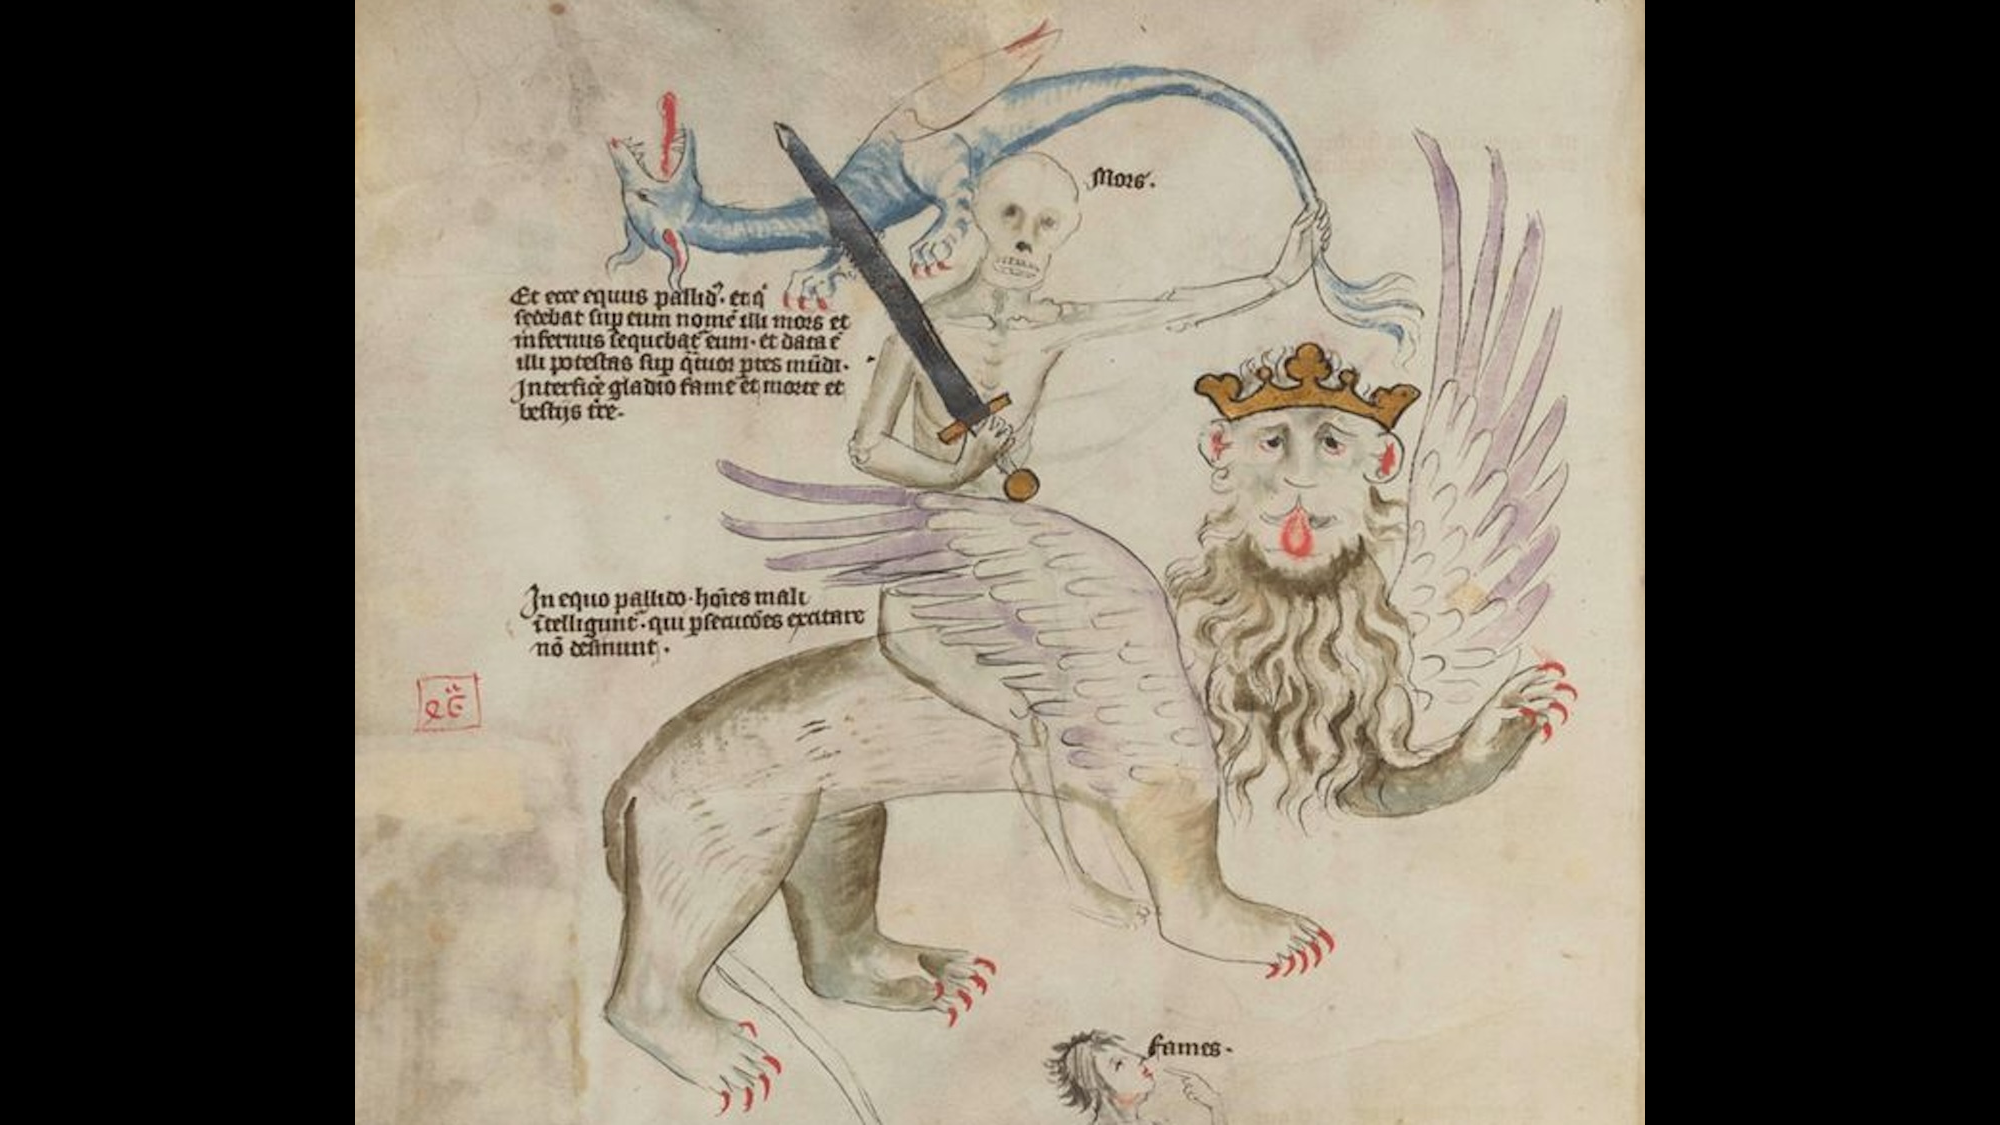 Mors.
Et ecce equus pallidꝰ. et q̇
sedebat sup eum nomē illi mors et
infernus sequebat᷑ eum. et data ē
illi potestas sup q̄tuor ptes mūdi.
Interfic̄e gladio fame et morte et
bestijs tr̄e.
In equo pallido. hoīes mali
ītelligunt᷑. qui psecucōes excitare
nō desinunt.
fames.